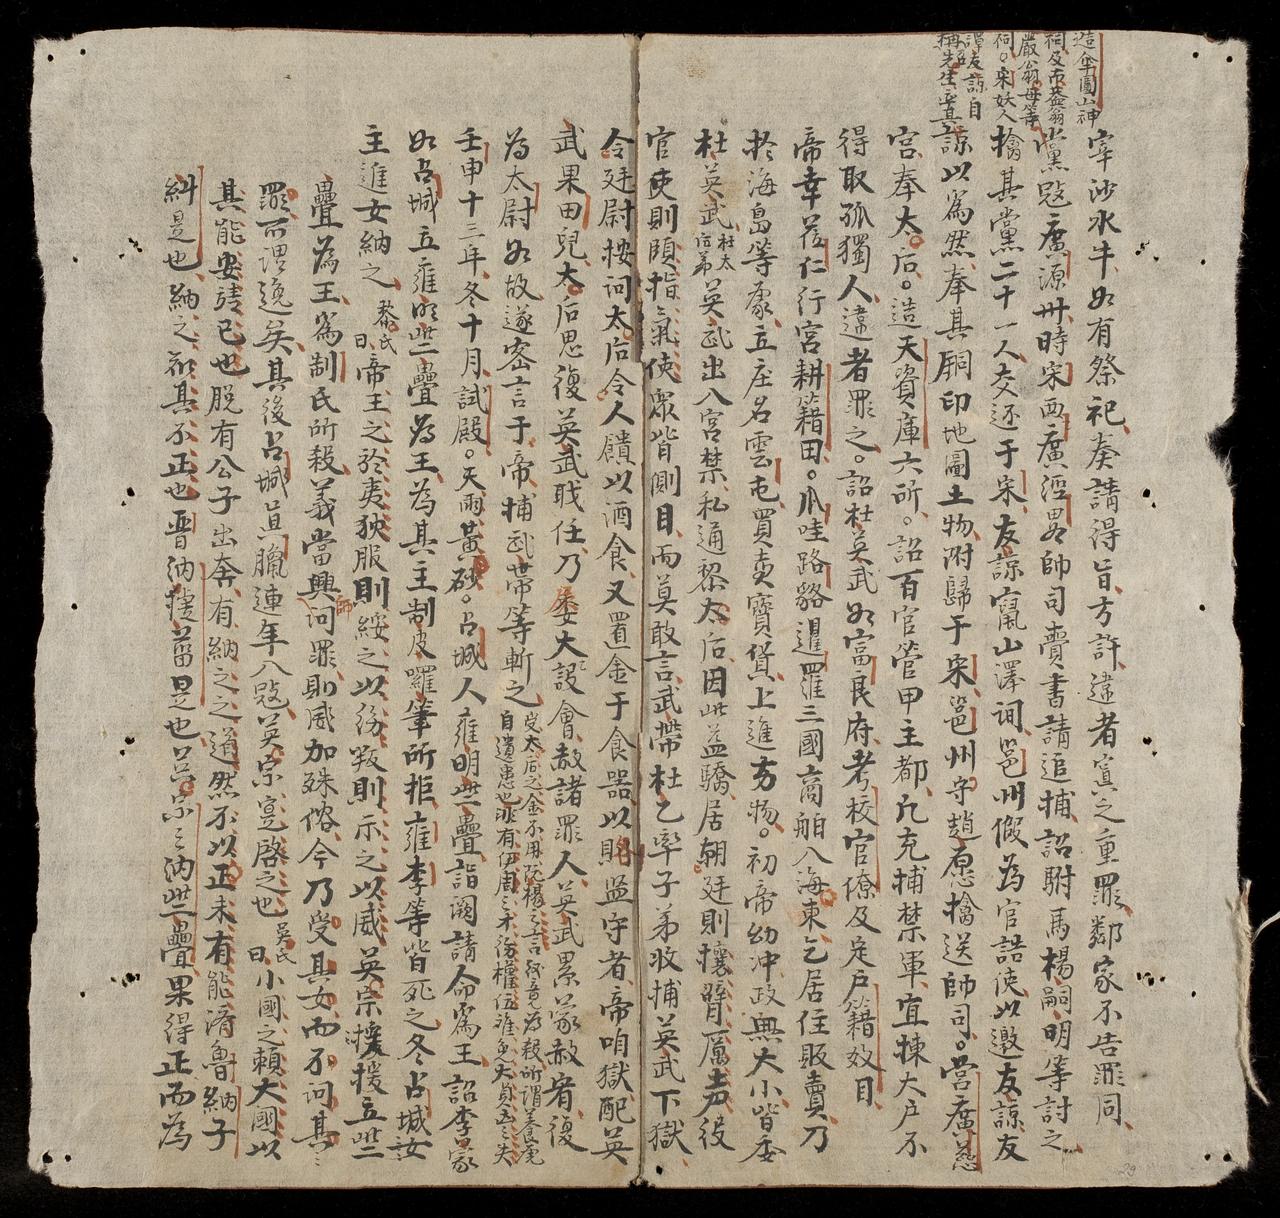 造傘圓山神
祠及布蓋翁
嚴翁母等
祠宋妖人
譚友諒自
稱先生
宰沙水牛如有祭祀奏請得旨方許違者寘之重罪鄰家不告罪同
黨寇廣源州時宋西廣經畧帥司賷書請追捕詔駙馬楊嗣明等討之
擒其黨二十一人交还于宋友諒竄山澤詞邕州假為官誥使以邀友諒友
諒以為然奉其銅印地圖土物附歸于宋邕州守趙愿擒送師司营廣慈
宫奉太后造天資庫六所詔百官管甲主都凡充捕禁軍宜揀大户不
得取孤獨人違者罪之詔杜英武如富良府考校官僚及定户籍效目
帝幸莅仁行宮耕籍田爪哇路貉暹羅三國商舶入海東乞居住販賣乃
於海島等處立庄名雲屯買卖寶貨上進方物初帝幼冲政無大小皆委
杜英武
杜太
后弟
英武出入宮禁私通黎太后因此益驕居朝廷則攘臂厲声役
官使則頤指氣使眾皆側目而莫敢言武帶杜乙率子弟收捕英武下獄
令廷尉按詞太后令人饋以酒食又置金于食器以賂监守者帝咱獄配英
武果田兒太后思復英武戝任乃屡大設會赦諸罪人英武累蒙赦宥復
為太尉如故遂密言于帝捕武帶等斬之
受太后之金不用阮楊之言
為殺所謂養虎
自遺患也非有伊周之才
壬申十三年冬十月試殿天雨黃砂占城人雍明些疊詣闕請命為王詔李蒙
如占城立雍明些疊為王為其主制皮囉筆所拒雍李等皆死之冬占城
主進女納之
黎氏
曰
帝王之於夷狄服則綏之以
叛則示之以威英宗援立些
疊為王為制氏所殺義當興師问罪則威加殊俗今乃受其女而不问其
罪所謂逸矣其後占城真臘連年入寇英宗寔啓之也
吴氏
曰
小國之賴大國以
其能安靖已也脱有公子出奔有納之之道然不以正未有能济魯納子
糾是也納之欲其不正也晋納捷菑是也
宗之納些疊果得正而為